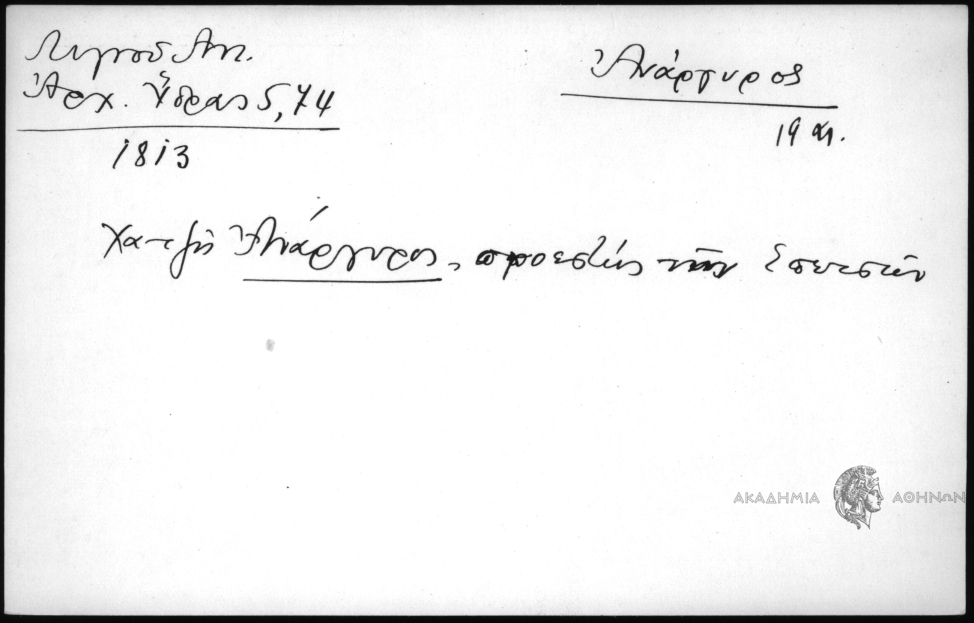 Λιγνού Αντ.
Ἀρχ. Ὕδρας 5, 74
1813
Ἀνάργυρος
19 αι.
Χατζῆ Ἀνάργυρος, προεστώς τῶν Σπετσῶν
ΑΚΑΔΗΜΙΑ ΑΘΗΝΩΝ